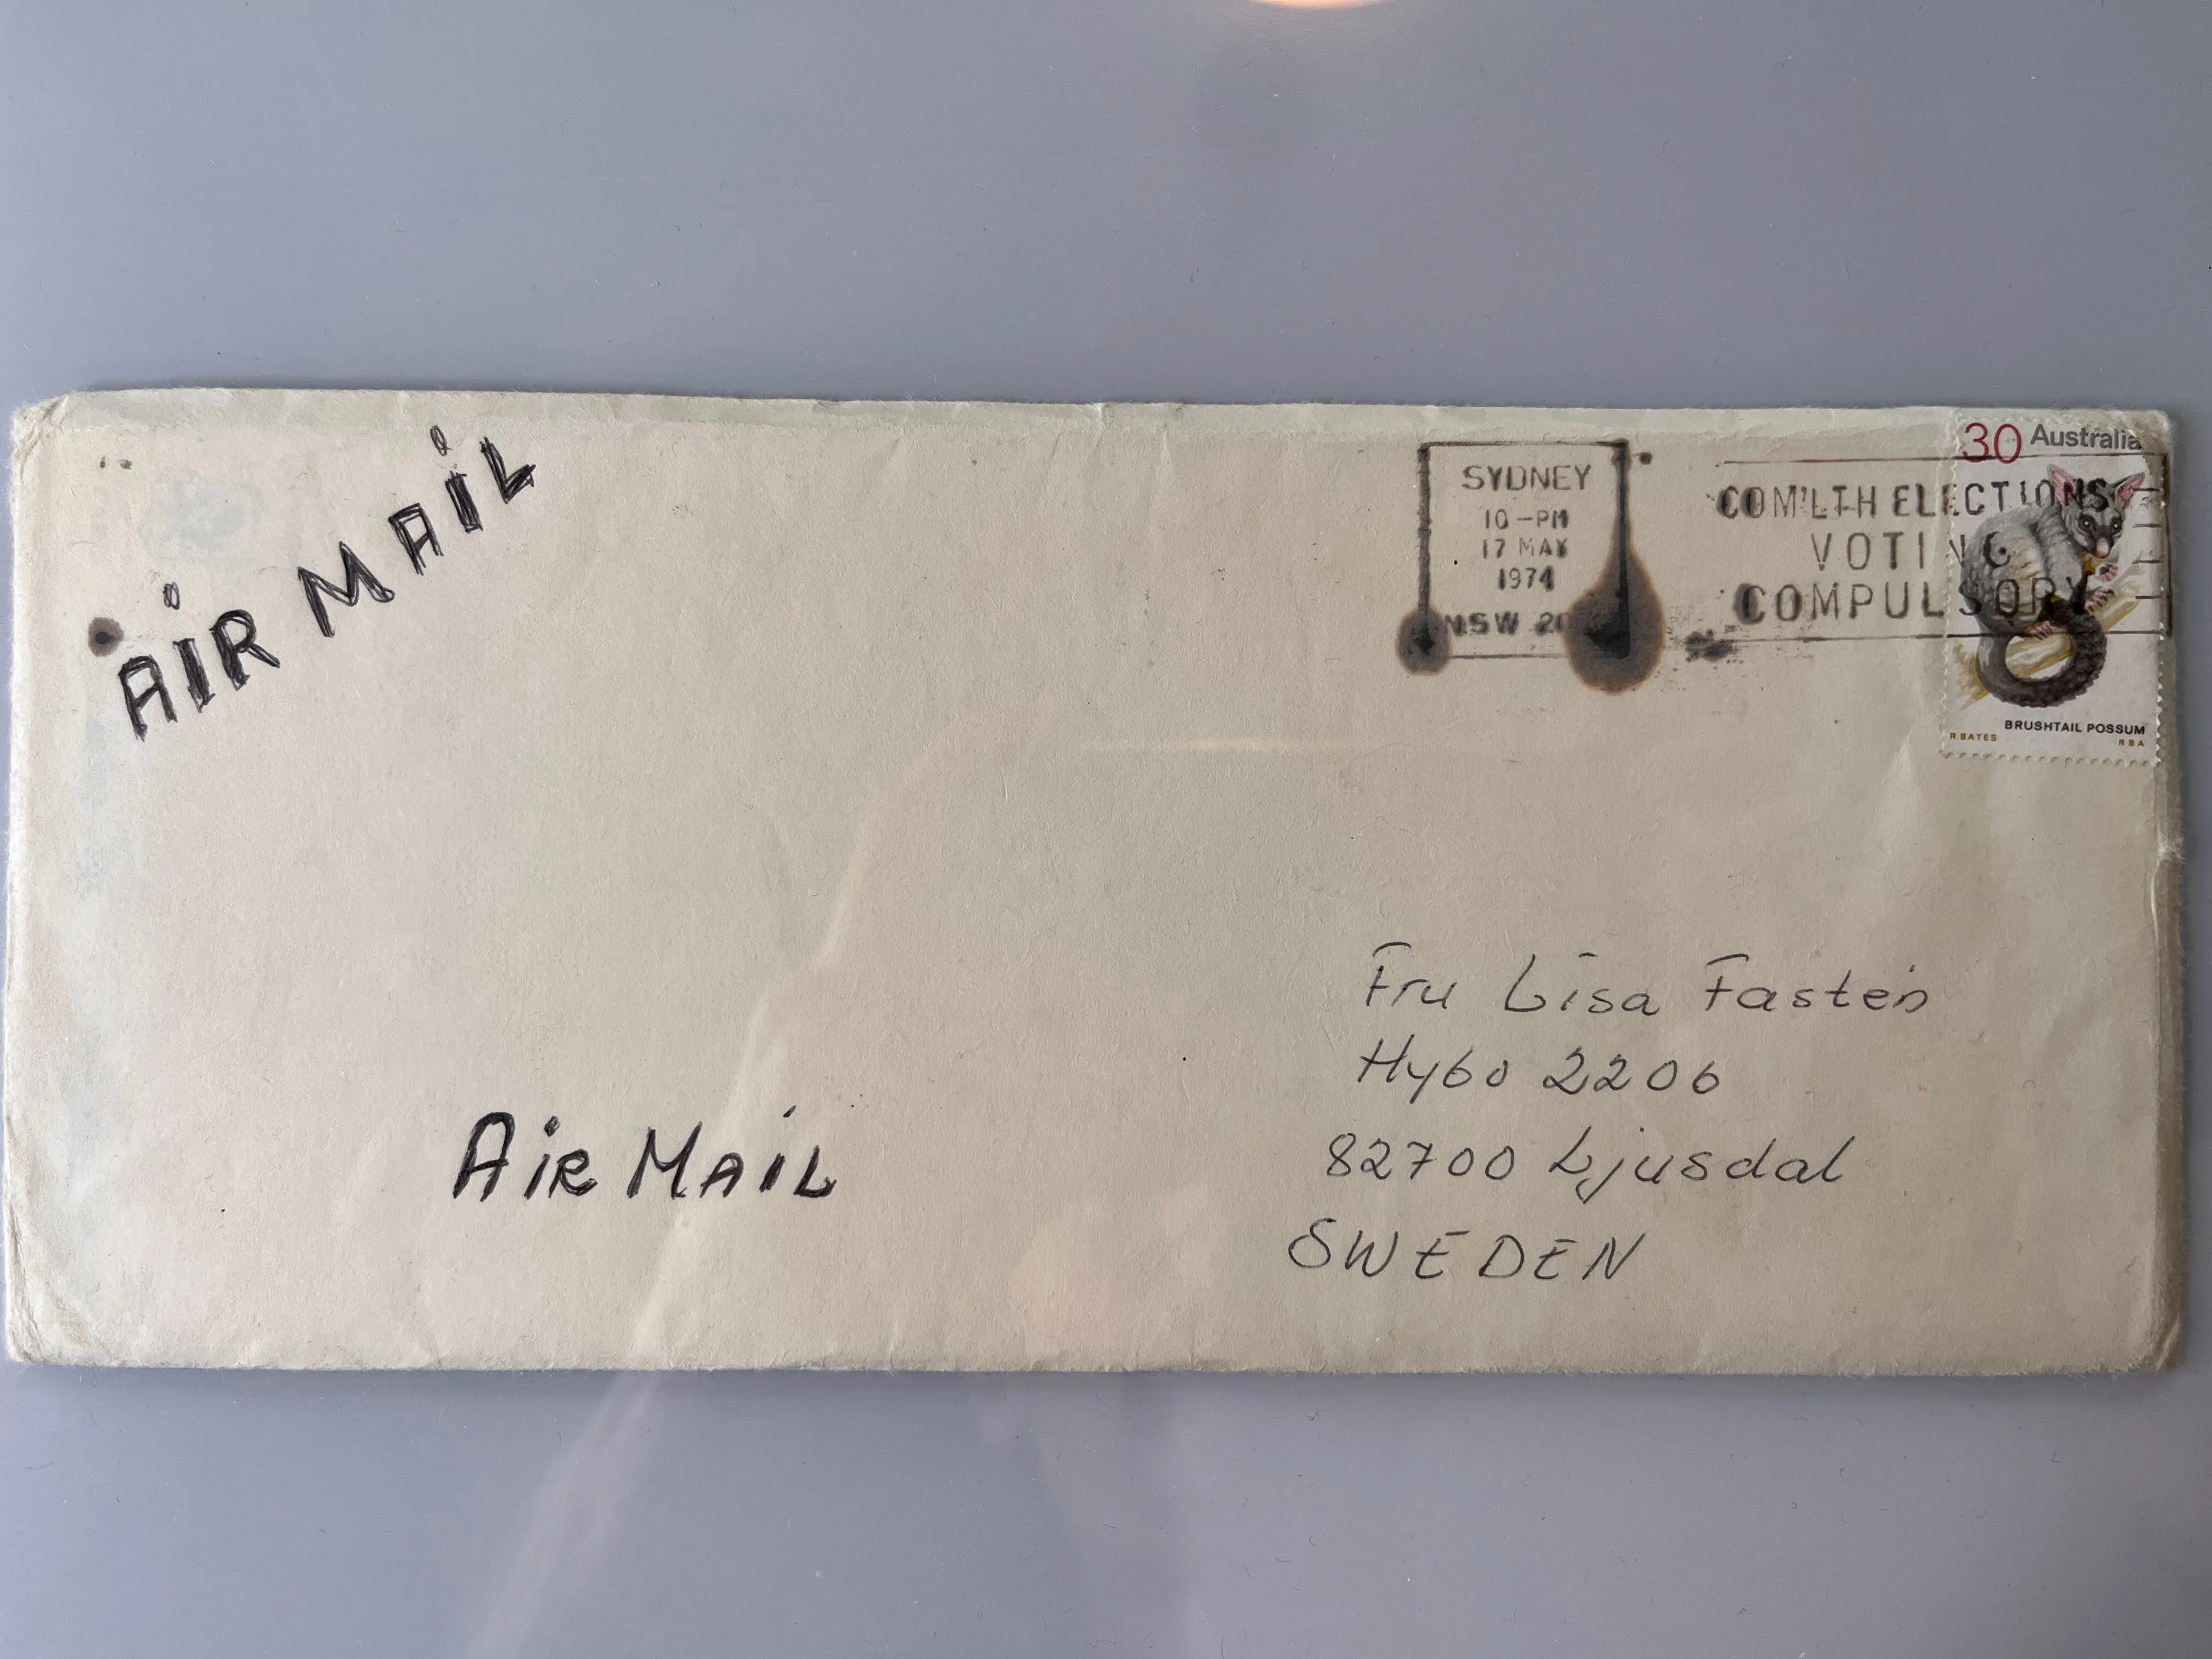 AIR MAIL
SYDNEY
10-PM
17 MAY
1974
NSW 20
COM'LTH ELECTIONS
VOTING
COMPULSORY
30 Australia
BRUSHTAIL POSSUM
R BATES RBA
Fru Lisa Fastén
Hybo 2206
82700 Ljusdal
SWEDEN
AIR MAIL